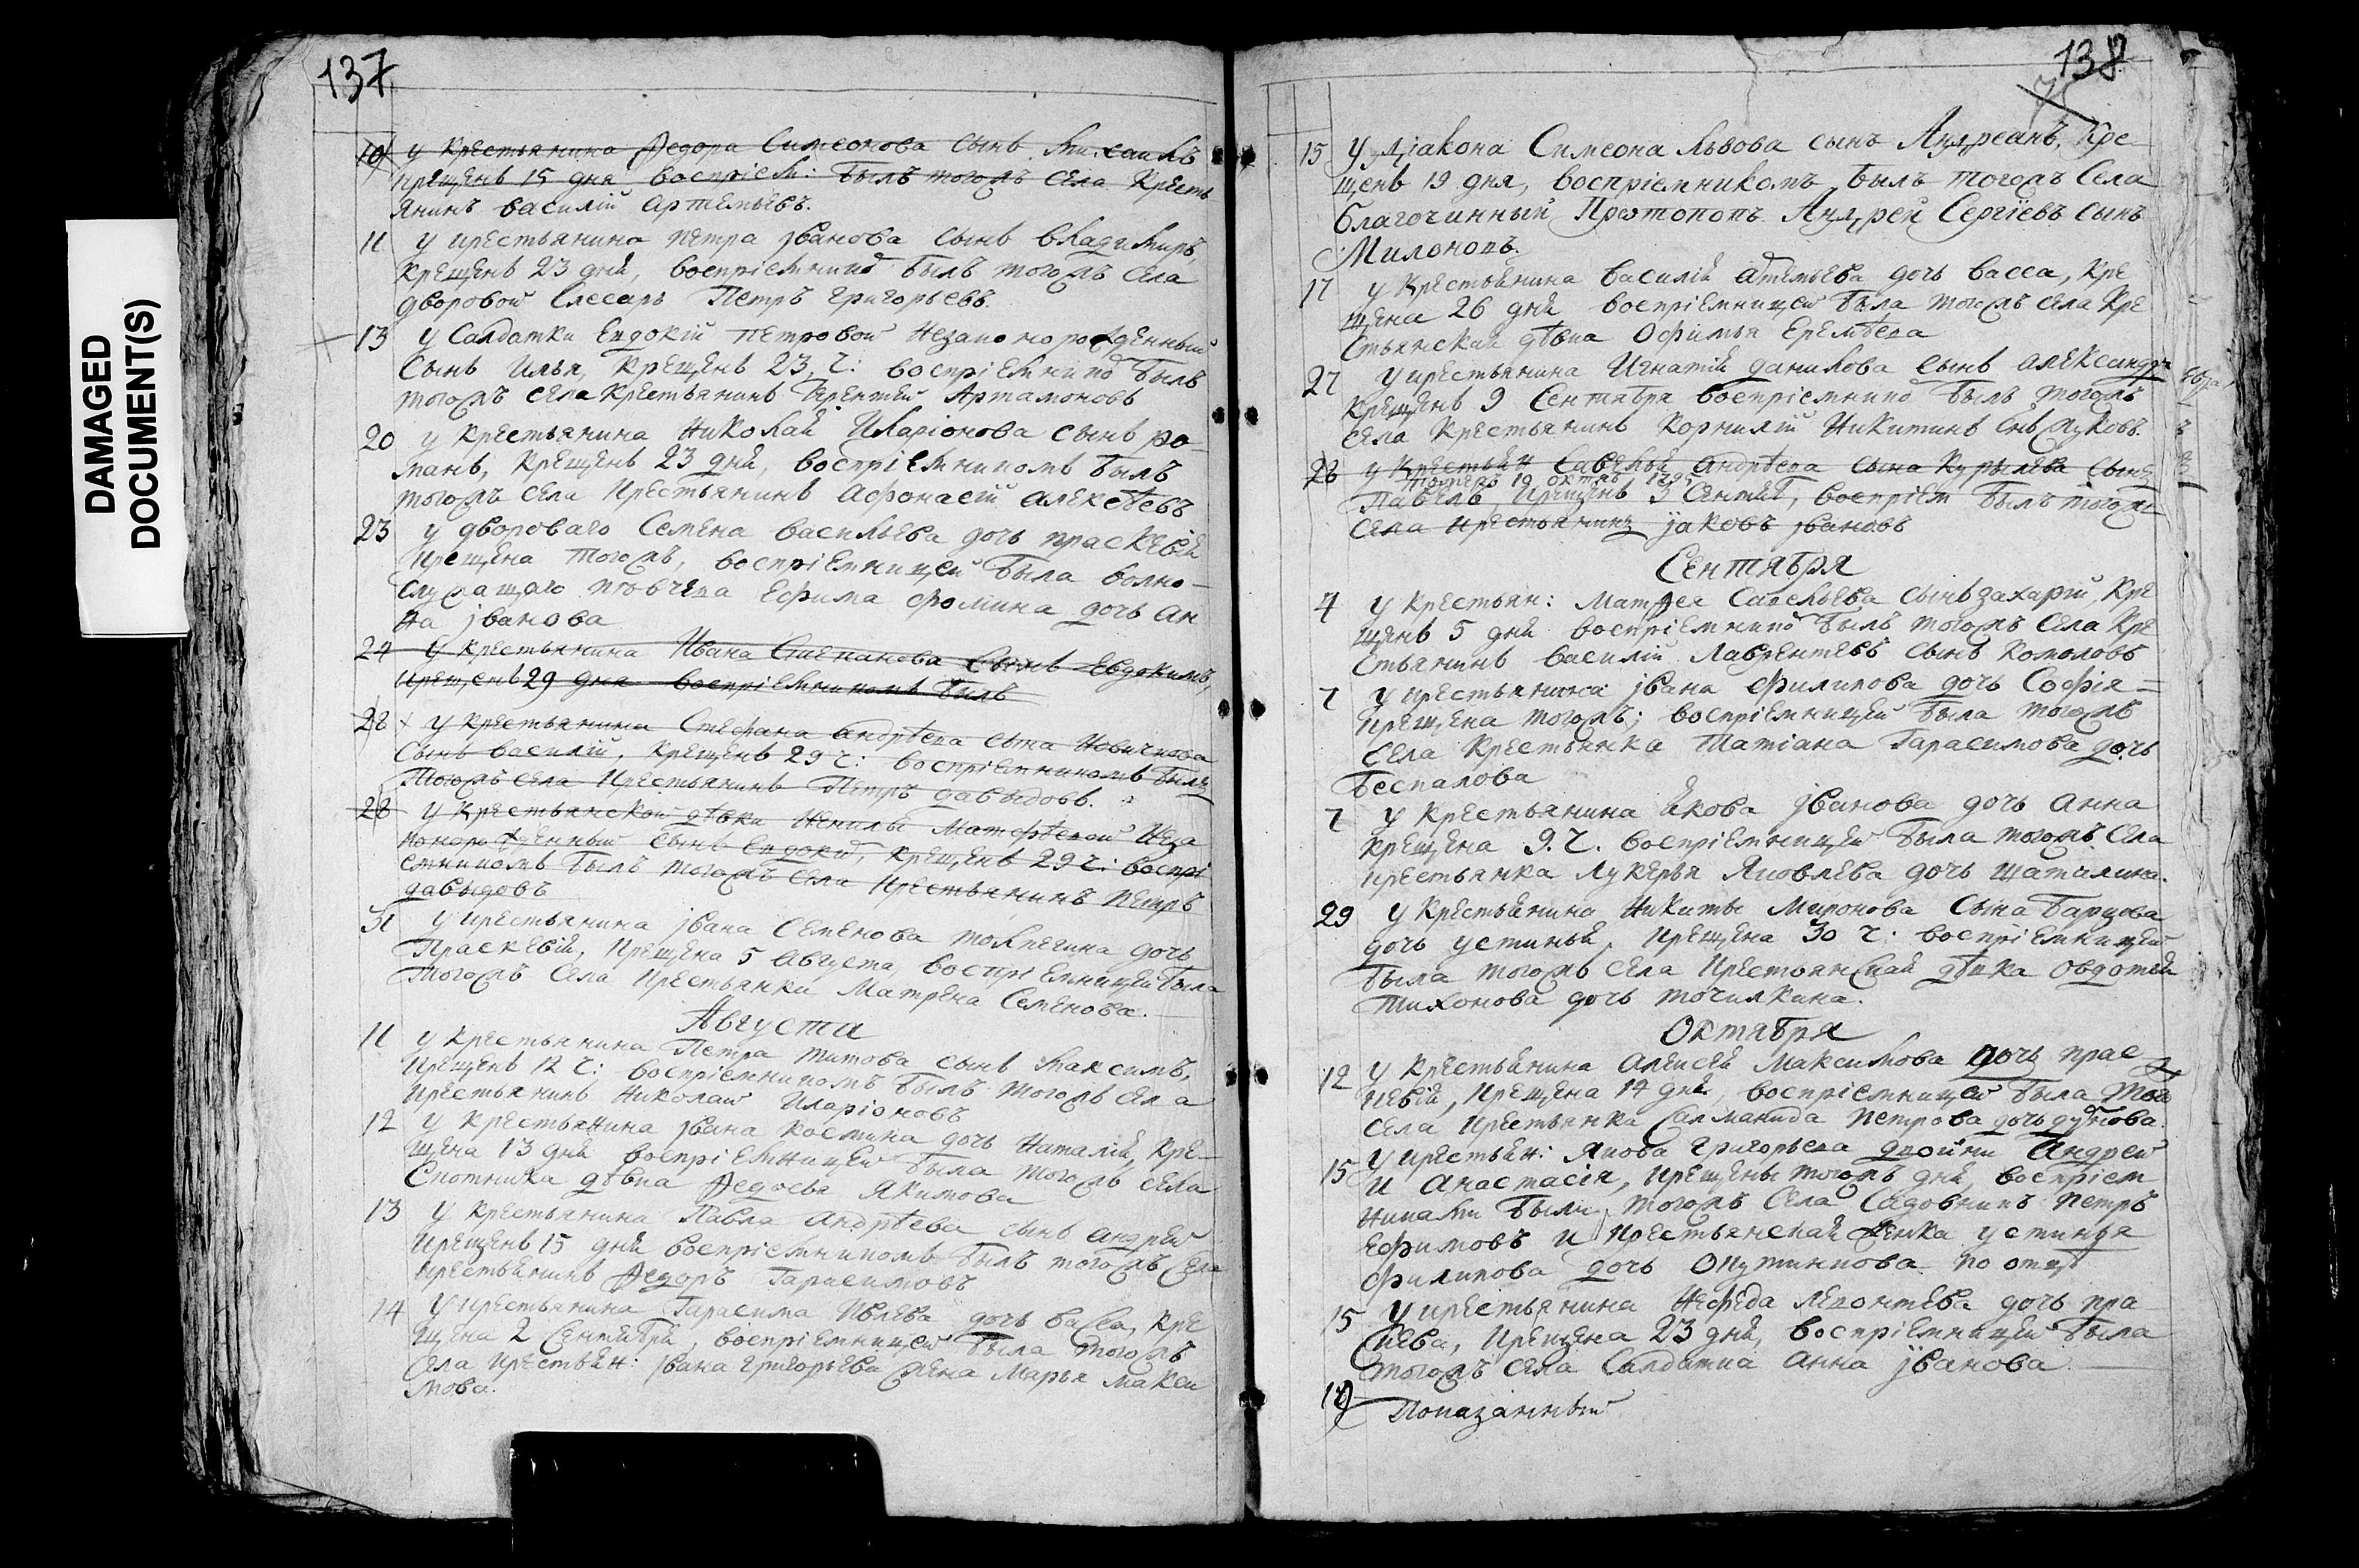 DAMAGED
DOCUMENT(S)
137
10 У крестьянина Федора Симеонова сынъ Михаилъ
крещенъ 15 дня воспріем: былъ тогожъ села кресть
янинъ Василій Артемьевъ.
11 У крестьянина Петра Іванова сынъ Владимиръ
крещенъ 23 дня, воспріемнико былъ тогожъ села
дворовой слесарь Петръ Григорьевъ.
13 У салдатки Евдокіи Петровой незаконорожденный
сынъ Илья, крещенъ 23, ч: воспріемнико былъ
тогожъ села крестьянинъ Терентей Артамоновъ
20 У крестьянина Николая Иларіонова сынъ Ро-
манъ, крещенъ 23 дня, воспріемникомъ былъ
тогожъ села крестьянинъ Афонасей Алексѣевъ
23 У двороваго Семена Васильева дочь Праскевія
крещена тогожъ, воспріемницей была волно-
служащаго пѣвчева Ефима Фомина дочь Ан
на Іванова
24 У крестьянина Ивана Степанова сынъ Евдокимъ,
крещенъ 29 дня воспріемникомъ былъ
28 У крестьянина Стефана Андрѣева сына Новичкова
сынъ Василій, крещенъ 29 ч: воспріемникомъ былъ
тогожъ села крестьянинъ Петръ Давыдовъ.
28 У крестьянской дѣвки Ненилы Матфѣевой неза
конорожденный сынъ Евдоким, крещенъ 29 ч: воспрі
емникомъ былъ тогожъ села крестьянинъ Петръ
Давыдовъ
31 У крестьянина Івана Семенова дочь
Праскевія, крещена 5 Августа, воспріемницей была
тогожъ села крестьянка Матрена Семенова.
Августа
11 У крестьянина Петра Титова сынъ Максимъ,
крещенъ 12 ч: воспріемникомъ былъ тогожъ села
крестьянинъ Николай Иларіоновъ
12 У крестьянина Івана Костина дочь Наталія, кре-
щена 13 дня воспріемницей была тогожъ села
скотника дѣвка Федосья Якимова
13 У крестьянина Павла Андрѣева сынъ Андрей
крещенъ 15 дня воспріемникомъ былъ тогожъ села
крестьянинъ Федоръ Гарасимовъ
14 У крестьянина Гарасима Ивлева дочь Васса, кре
щена 2 Сентября, воспріемницей была тогожъ
села крестьян: Івана Григорьева жена Марья Макси
мова.
138
75
15 У діакона Симеона Львова сынъ Андреанъ, кре-
щенъ 19 дня, воспріемникомъ былъ тогожъ села
благочинный Протопопъ Андрей Сергіевъ сынъ
Милоновъ.
17 У крестьянина Василія Атемьева дочь Васса, кре
щена 26 дня воспріемницей была тогожъ села кре
стьянская дѣвка Офимья Еремѣева
27 У крестьянина Игнатія Данилова сынъ Александръ
крещенъ 9 Сентября воспріемнико былъ тогожъ
села крестьянинъ Корнилій Никитинъ снъ Жуковъ.
28 У крестьян Савелья Андрѣева сына Курылева сынъ
померъ 19 октяб 1795
Павелъ, крещенъ 3 Сентяб, воспріем былъ тогожъ
села крестьянинъ Іаковъ Івановъ
Сентября
4 У крестьян: Матфея Савельева сынъ Захарій, кре
щянъ 5 дня воспріемнико былъ тогожъ села кре
стьянинъ Василій Лаврентевъ сынъ Комоловъ
7 У крестьянина Івана Филипова дочь Софія =
крещена тогожъ; воспріемницей была тогожъ
села крестьянка Татіана Гарасимова дочь
Беспалова
7 У крестьянина Якова Іванова дочь Анна
крещена 9. ч. воспріемницей была тогожъ села
крестьянка Лукерья Яковлева дочь Щаталина.
29 У крестьянина Никиты Миронова сына Барцова
дочь Устинья, крещена 30 ч: воспріемницей
была тогожъ села крестьянская дѣвка Овдотья
Тихонова дочь Точилкина.
Октября
12 У крестьянина Алексея Максимова дочь Прас
кевія, крещена 14 дня, воспріемницей была тогож
села крестьянка Саломанида Петрова дочь Дубкова.
15 У крестьян: Якова Григорьева двойни Андрей
и Анастасія, крещены тогожъ дня, воспріем
никами были, тогожъ села садовникъ Петръ
Ефимовъ и крестьянская женка Устинья
Филипова дочь Опутинкова по отцѣ
15 У крестьянина Нефеда Левонтева дочь Пра
скева, крещена 23 дня, воспріемницей была
тогожъ села салдатка Анна Іванова
19 Показанный